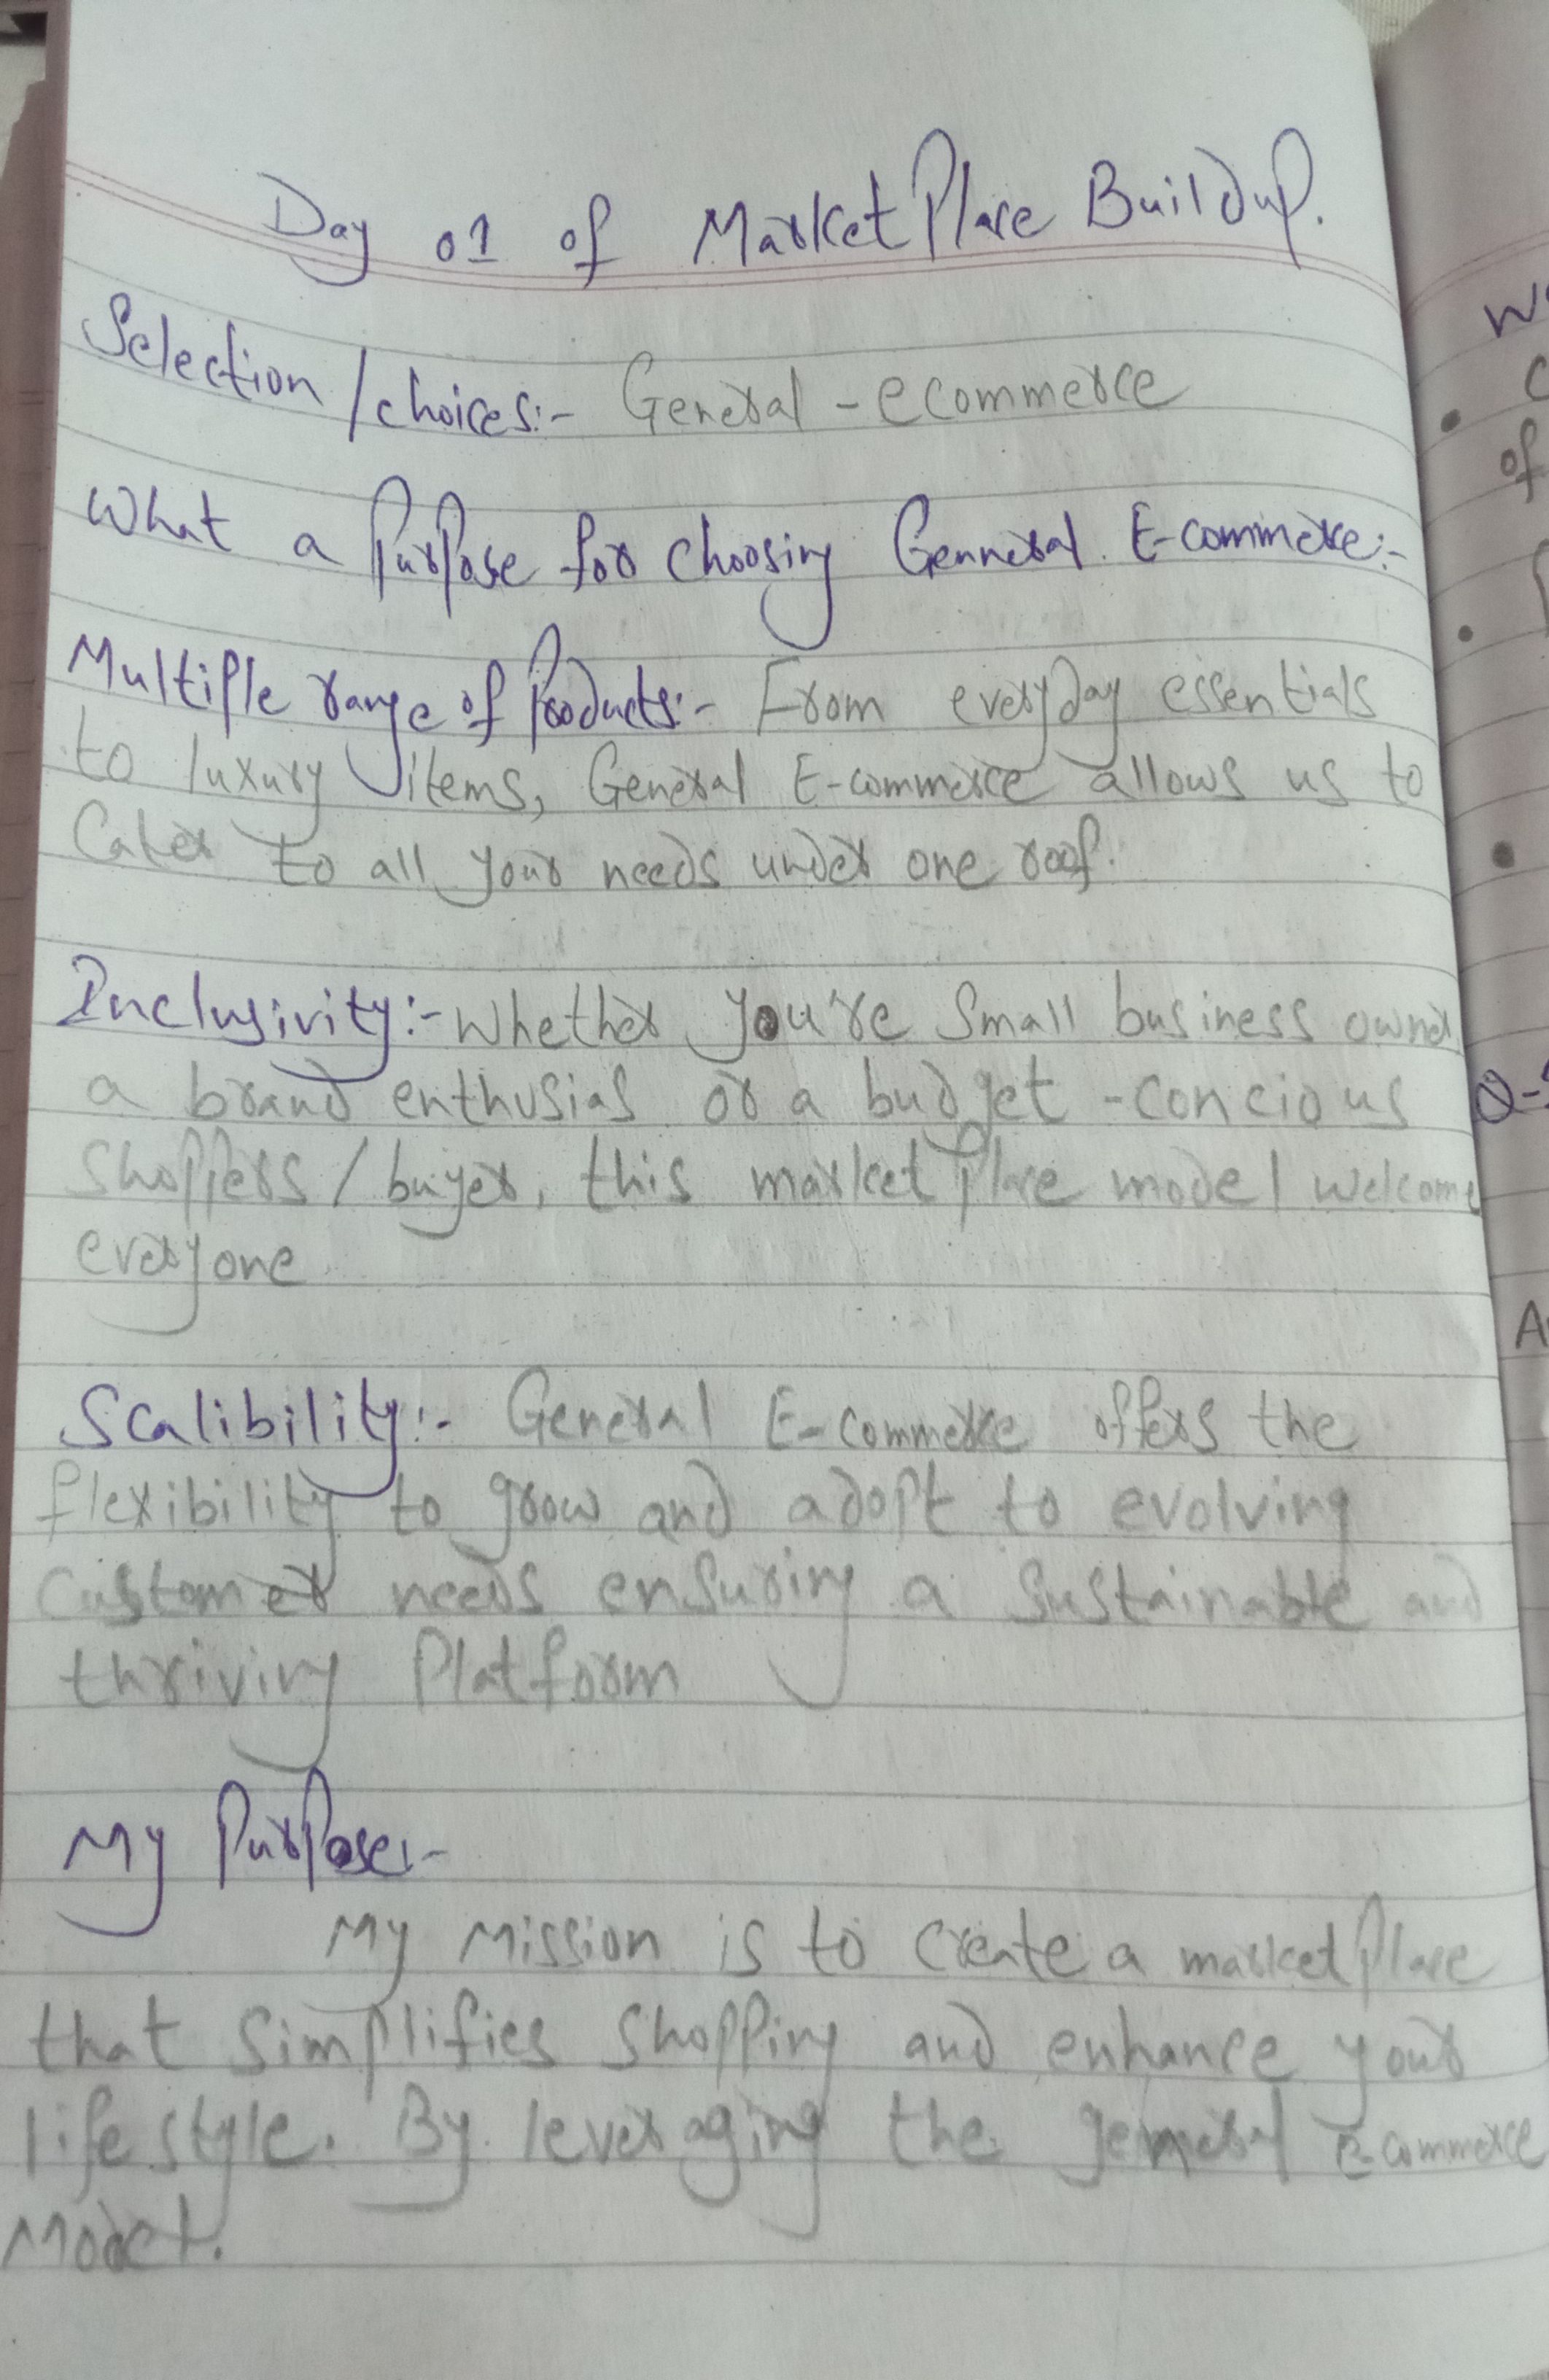 Day 01 of Market Place Buildup.
Selection / choices:- General - ecommerce
What a Purpose for choosing Genneral E-commerce:-
Multiple range of Products:- From everyday essentials
to luxury items, General E-commerce allows us to
Cater to all your needs under one roof.
Inclusivity:- Whether you're Small business owner
a brand enthusias or a budget -concious
Shoppers / buyer, this market place model welcome
everyone
Scalibility:- General E-commerce offers the
flexibility to grow and adopt to evolving
Customer needs ensuring a Sustainable and
thriving Platform
My Purpose:-
My Mission is to Create a market place
that Simplifies Shopping and enhance your
life style. By leveraging the general e-commerce
Model.
of
Q-